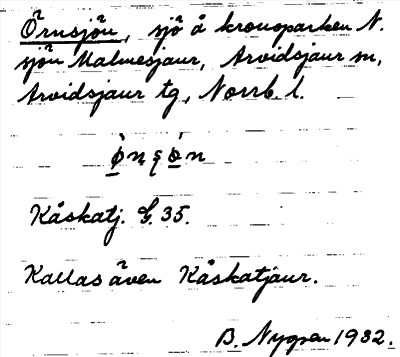 Örnsjön, sjö å kronoparken N.
sjön Malmesjaur, Arvidsjaur sn,
Arvidsjaur tg, Norrb. l.
Kåskatj. G. 35.
Kallas även Kåskatjaur.
B. Nygren 1932.